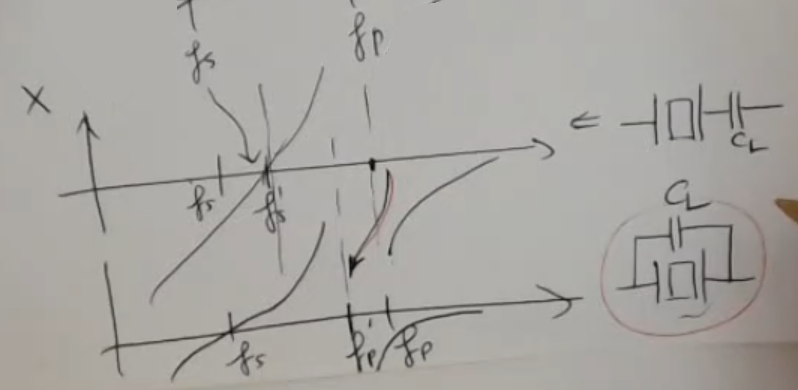 fs fp
X
fs fs'
CL
CL
fs fp' fp